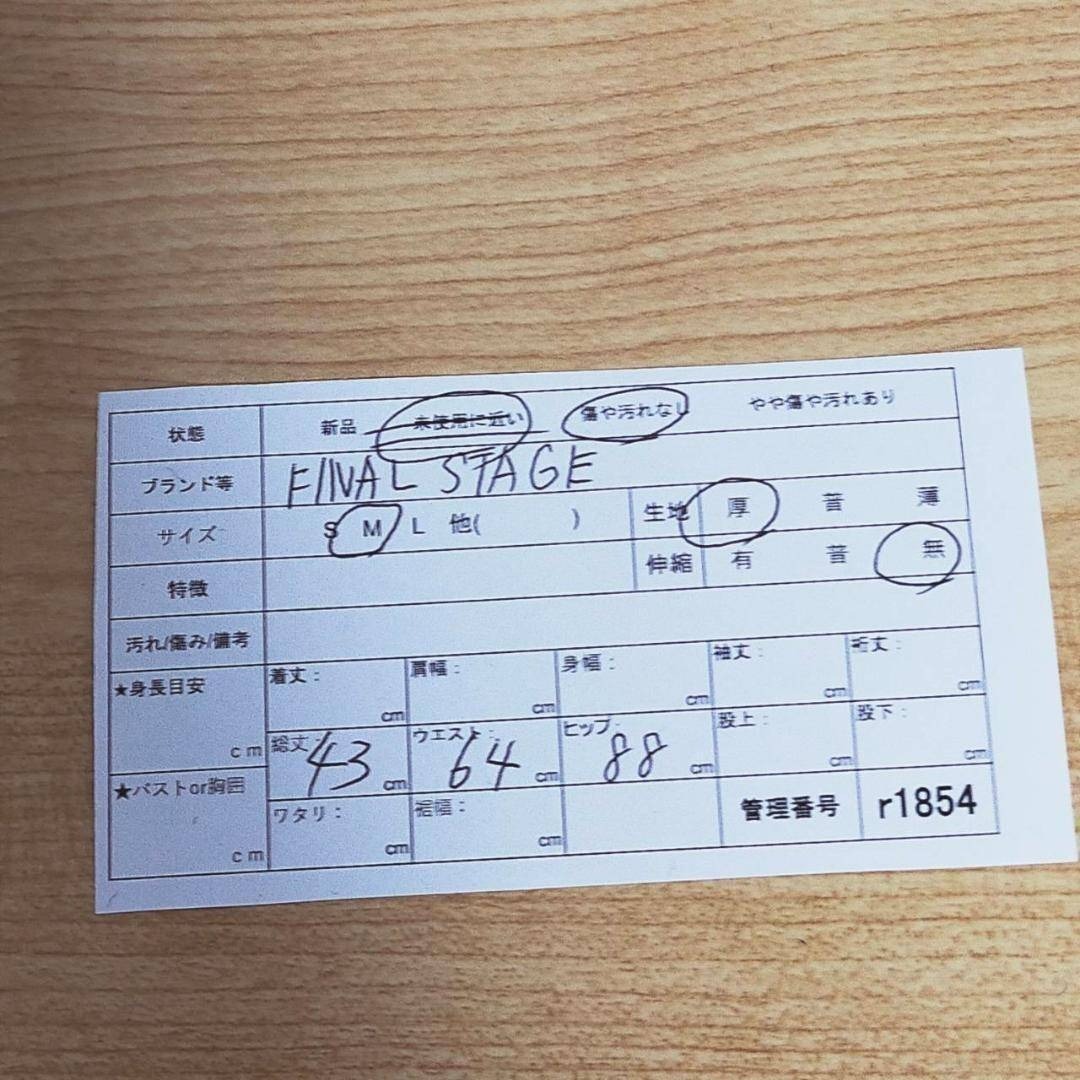 状態 新品 未使用に近い 傷や汚れなし やや傷や汚れあり
ブランド等 FINAL STAGE
サイズ S M L 他( ) 生地 厚 普 薄
特徴 伸縮 有 普 無
汚れ/傷み/備考
★身長目安 cm 着丈: cm 肩幅: cm 身幅: cm 袖丈: cm 裄丈: cm
総丈: 43 cm ウエスト: 64 cm ヒップ: 88 cm 股上: cm 股下: cm
★バストor胸囲 cm ワタリ: cm 裾幅: cm 管理番号 r1854